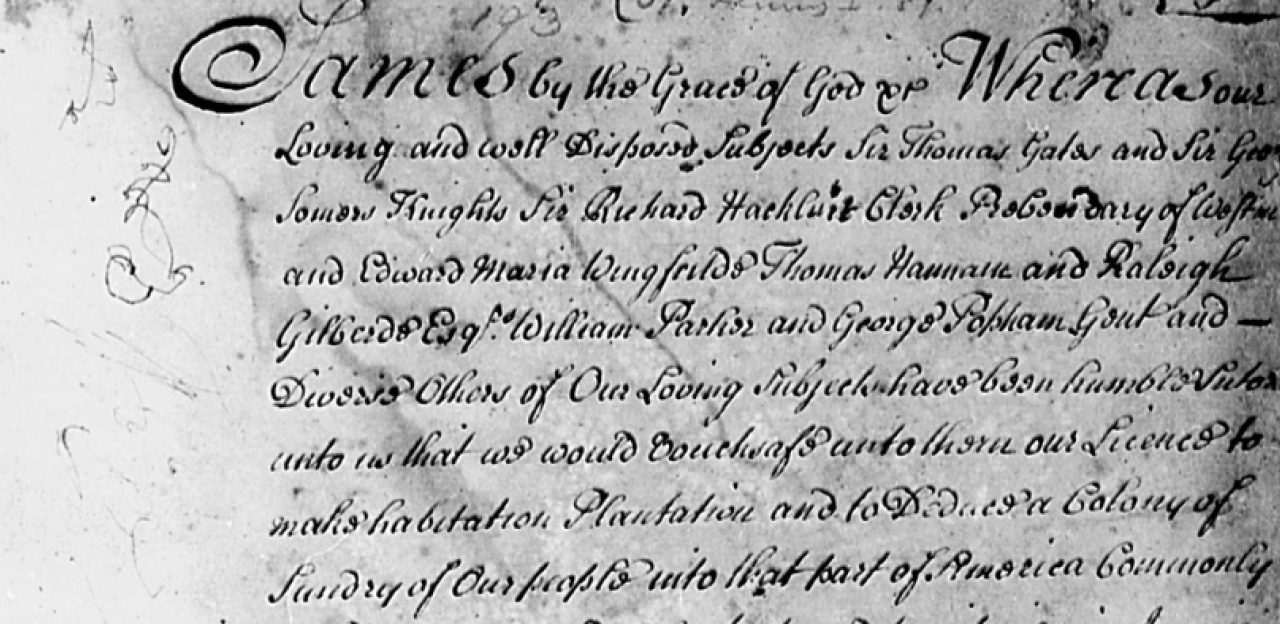 James by the Grace of God &c Whereas our
Loving and well Disposed Subjects Sir Thomas Gates and Sir
Somers Knights Sir Richard Hackluit Clerk Prebendary of
and Edward Maria Wingfeilde Thomas Hannam and Raleigh
Gilberde Esqrs. William Parker and George Popham Gent and —
Diverse Others of Our Loving Subjects have been humble
unto us that we would vouchsafe unto them our Licence to
make habitation Plantation and to Deduce a Colony of
Sundry of Our people into that part of America Commonly